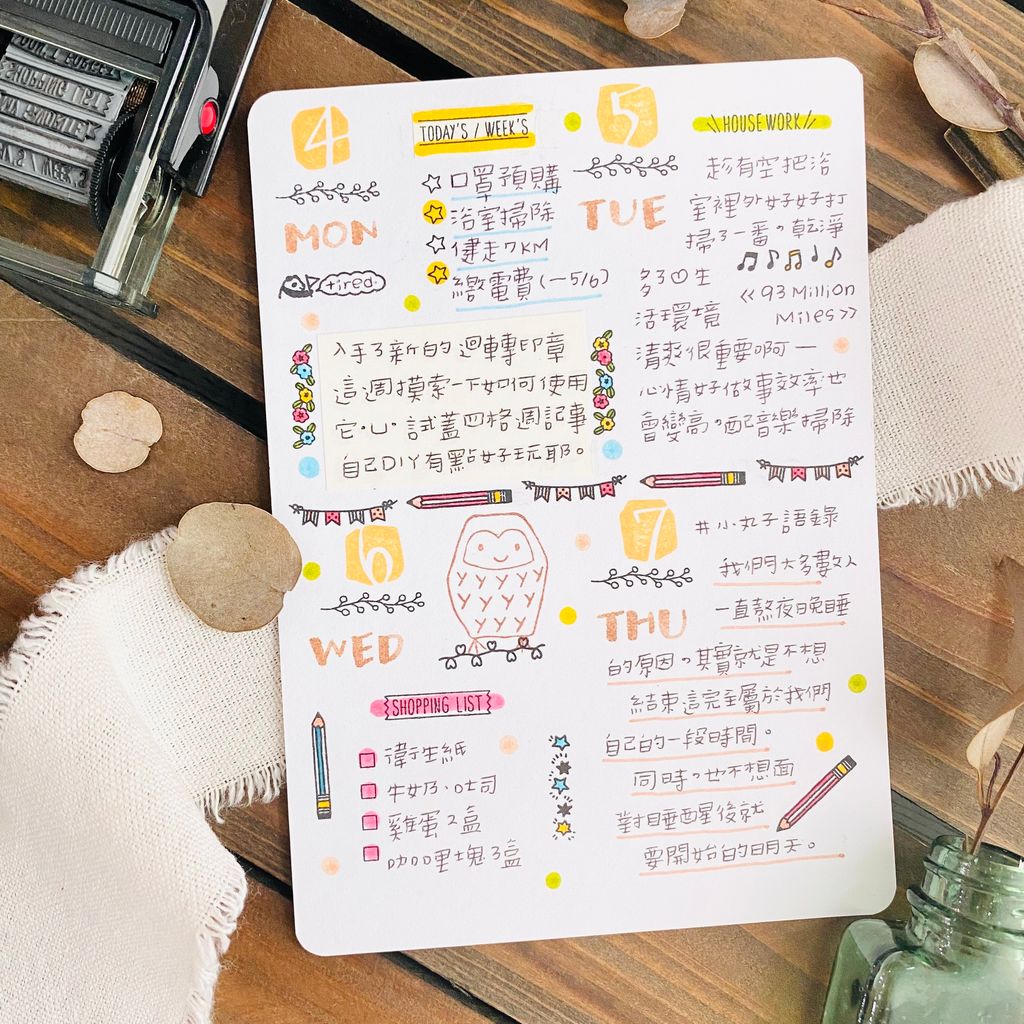 4
MON
tired
TODAY'S / WEEK'S
口罩預購
浴室掃除
健走7KM
繳電費(—5/6)
入手了新的迴轉印章
這週摸索一下如何使用
它·ㄩ·試蓋四格週記事
自己DIY有點好玩耶。
5
TUE
HOUSEWORK
趁有空把浴
室裡外好好打
掃了一番。乾淨
多了 生
活環境
<<93 Million
Miles>>
清爽很重要啊—
心情好做事效率也
會變高。配音樂掃除
6
WED
SHOPPING LIST
衛生紙
牛奶、吐司
雞蛋2盒
咖哩塊3盒
7
THU
#小丸子語錄
我們大多數人
一直熬夜晚睡
的原因。其實就是不想
結束這完全屬於我們
自己的一段時間。
同時。也不想面
對睡醒後就
要開始的明天。